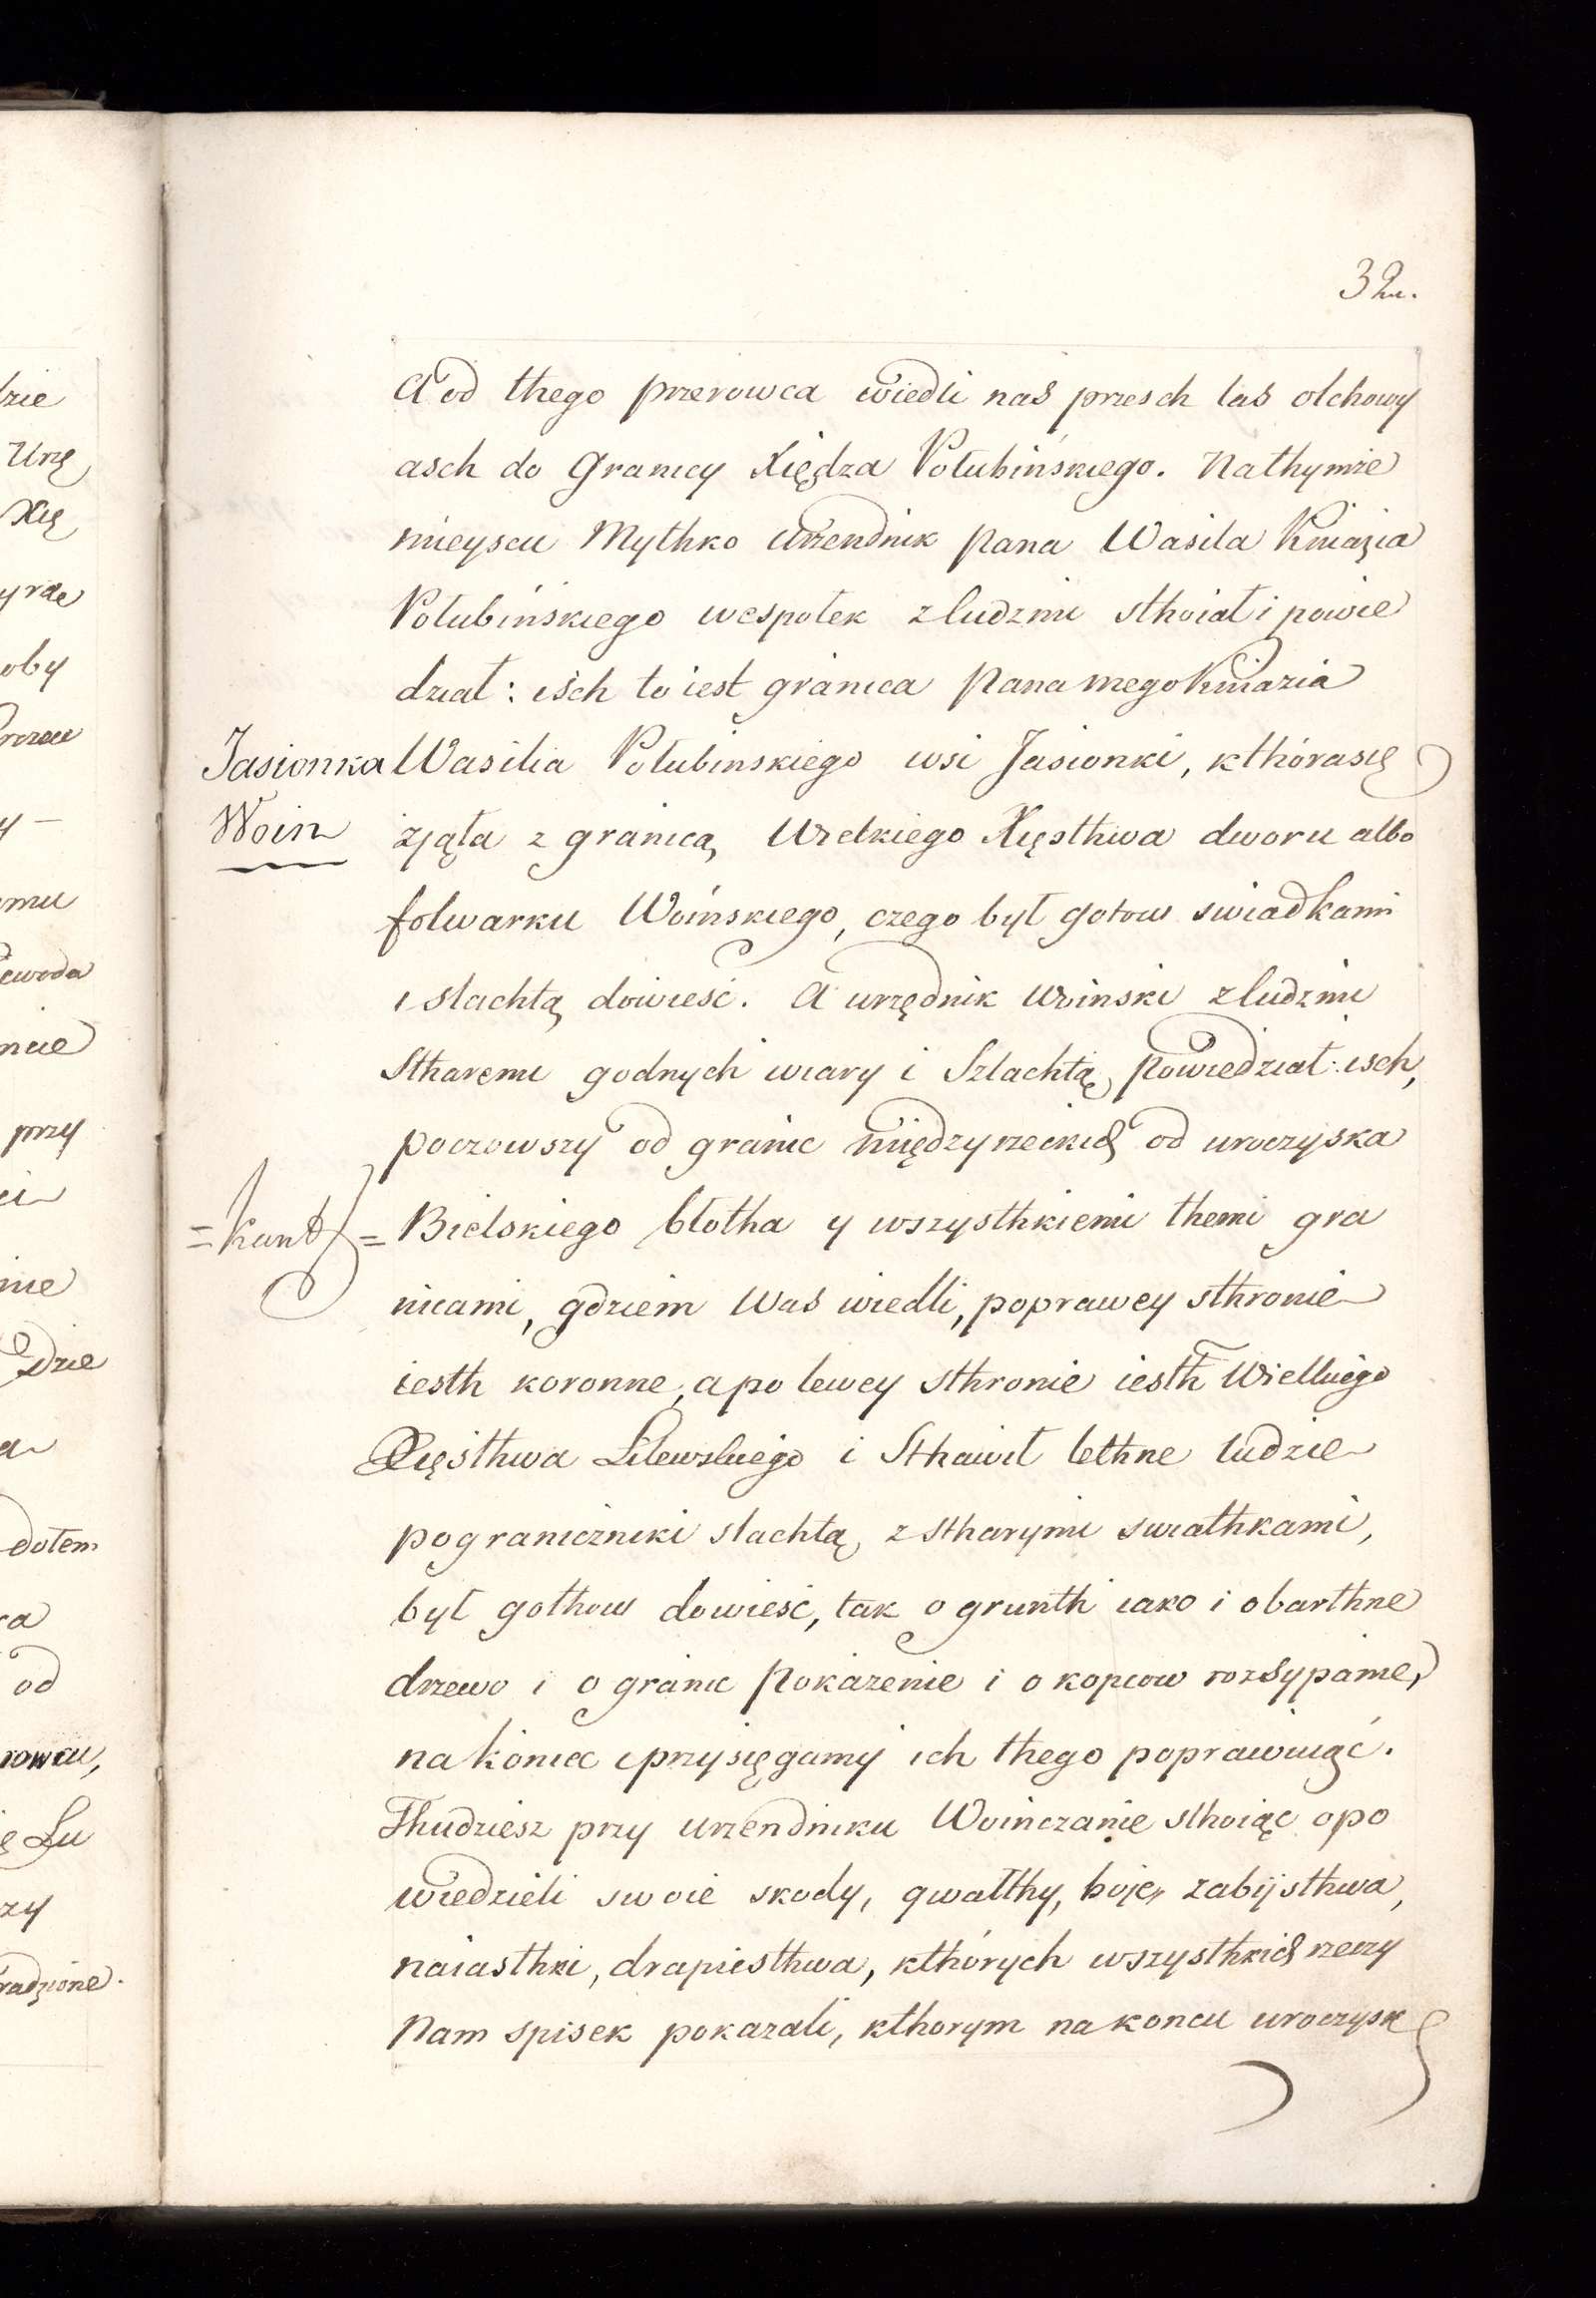 32.
A od thego przerowca wiedli nas przesch las olchowy
asch do Granicy Xiędza Połubińskiego. Nathymże
mieyscu Mythko Urzendnik Pana Wasila Kniazia
Połubińskiego wespołek z ludzmi sthoiał i powie
dział: isch to iest granica Pana mego Kniazia
Jasionka Wasilia Połubinskiego wsi Jasionki, kthóra się
Woin zjąła z granicą Wielkiego Xięsthwa dworu albo
folwarku Woińskiego, czego był gotow swiadkami
i slachtą dowieść. A urzędnik Woinski z ludzmi
Stharemi godnych wiary i Szlachtą, Powiedział: isch,
poczowszy od granic międzyrzeckich od uroczyska
=kunt= Bielskiego błotha y wszysthkiemi themi gra
nicami, gdziem Was wiedli, poprawey sthronie
iesth koronne, a po lewey sthronie iesth Wielkiego
Xięsthwa Litewskiego i Sthawił lethne ludzie
pograniczniki slachtą, z stharymi swiathkami,
był gothow dowieść, tak o grunth iako i o barthne
drzewo i o granic Pokażenie i o kopcow rozsypanie,
na koniec i przysięgamy ich thego poprawiwać.
Thudziesz przy urzendniku Woińczanie sthoiąc opo
wiedzieli swoie skody, gwałthy, boje, zabijsthwa,
naiasthki, drapiesthwa, kthórych wszysthkich rzeczy
Nam spisek pokazali, kthorym na koncu uroczysk
dzie
Urzę
Xię
oby
przy
dołem
od
rowcu,